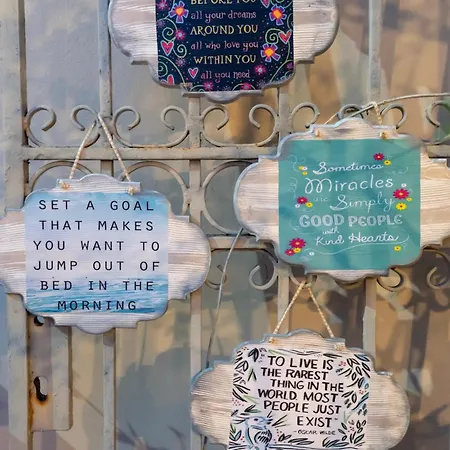 BEFORE YOU
all your dreams
AROUND YOU
all who love you
WITHIN YOU
all you need
Sometimes
Miracles
are Simply
GOOD PEOPLE
with
Kind Hearts
SET A GOAL
THAT MAKES
YOU WANT TO
JUMP OUT OF
BED IN THE
MORNING
TO LIVE IS
THE RAREST
THING IN THE
WORLD. MOST
PEOPLE JUST
EXIST
- OSCAR WILDE